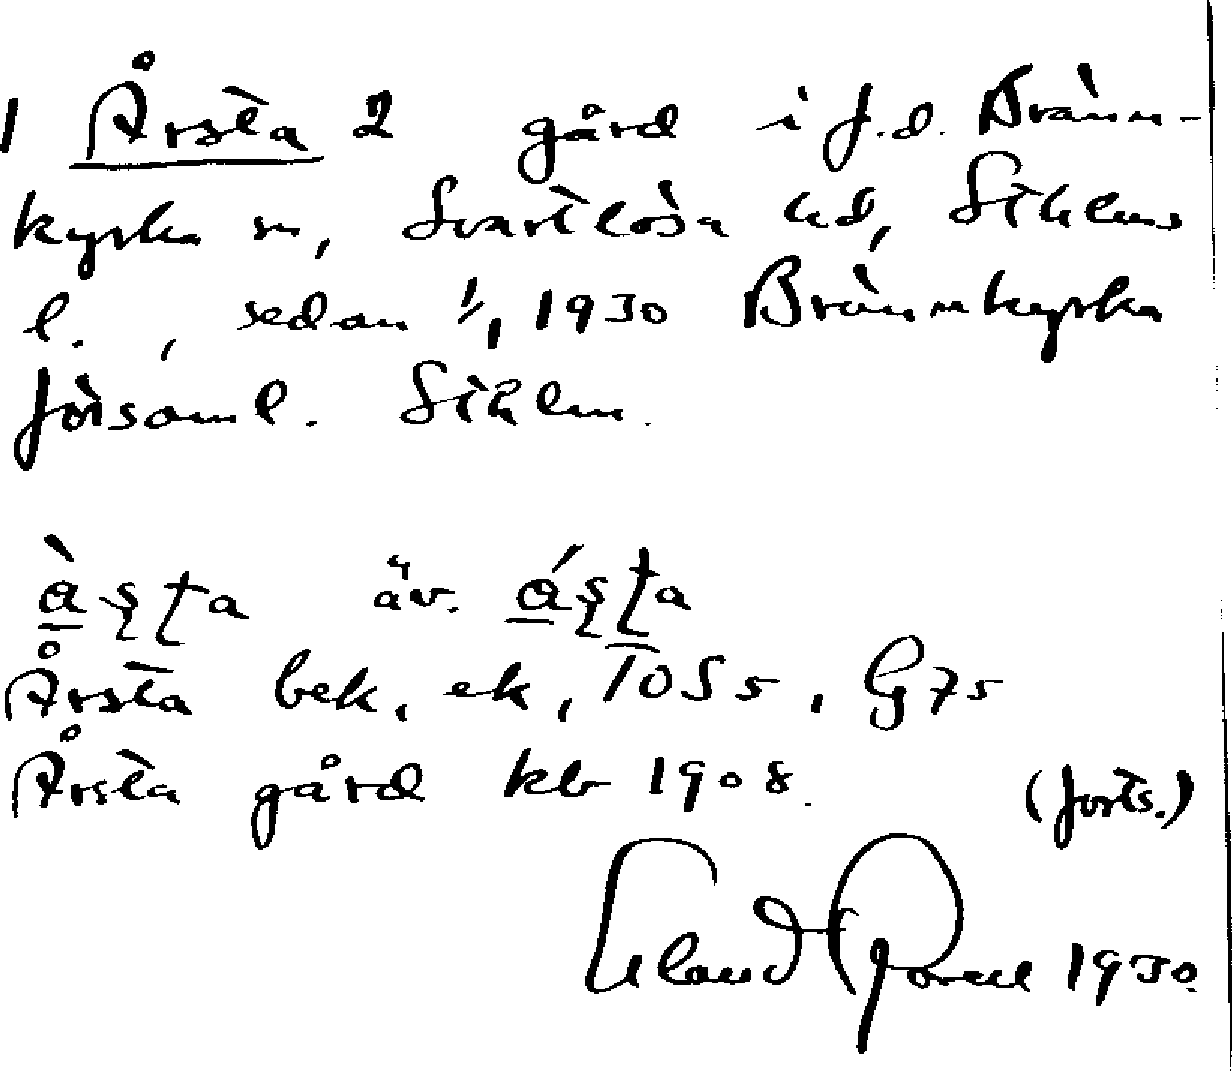 1 Årsta 2 gård i f.d. Bränn-
kyrka sn, Svartlösa hd, Sthlms
l., sedan 1/1 1930 Brännkyrka
församl. Sthlm.
àṣṭa äv. áṣṭa
Årsta bek, ek, TOS 5, G 75
Årsta gård kb 1908.
(forts.)
1930.